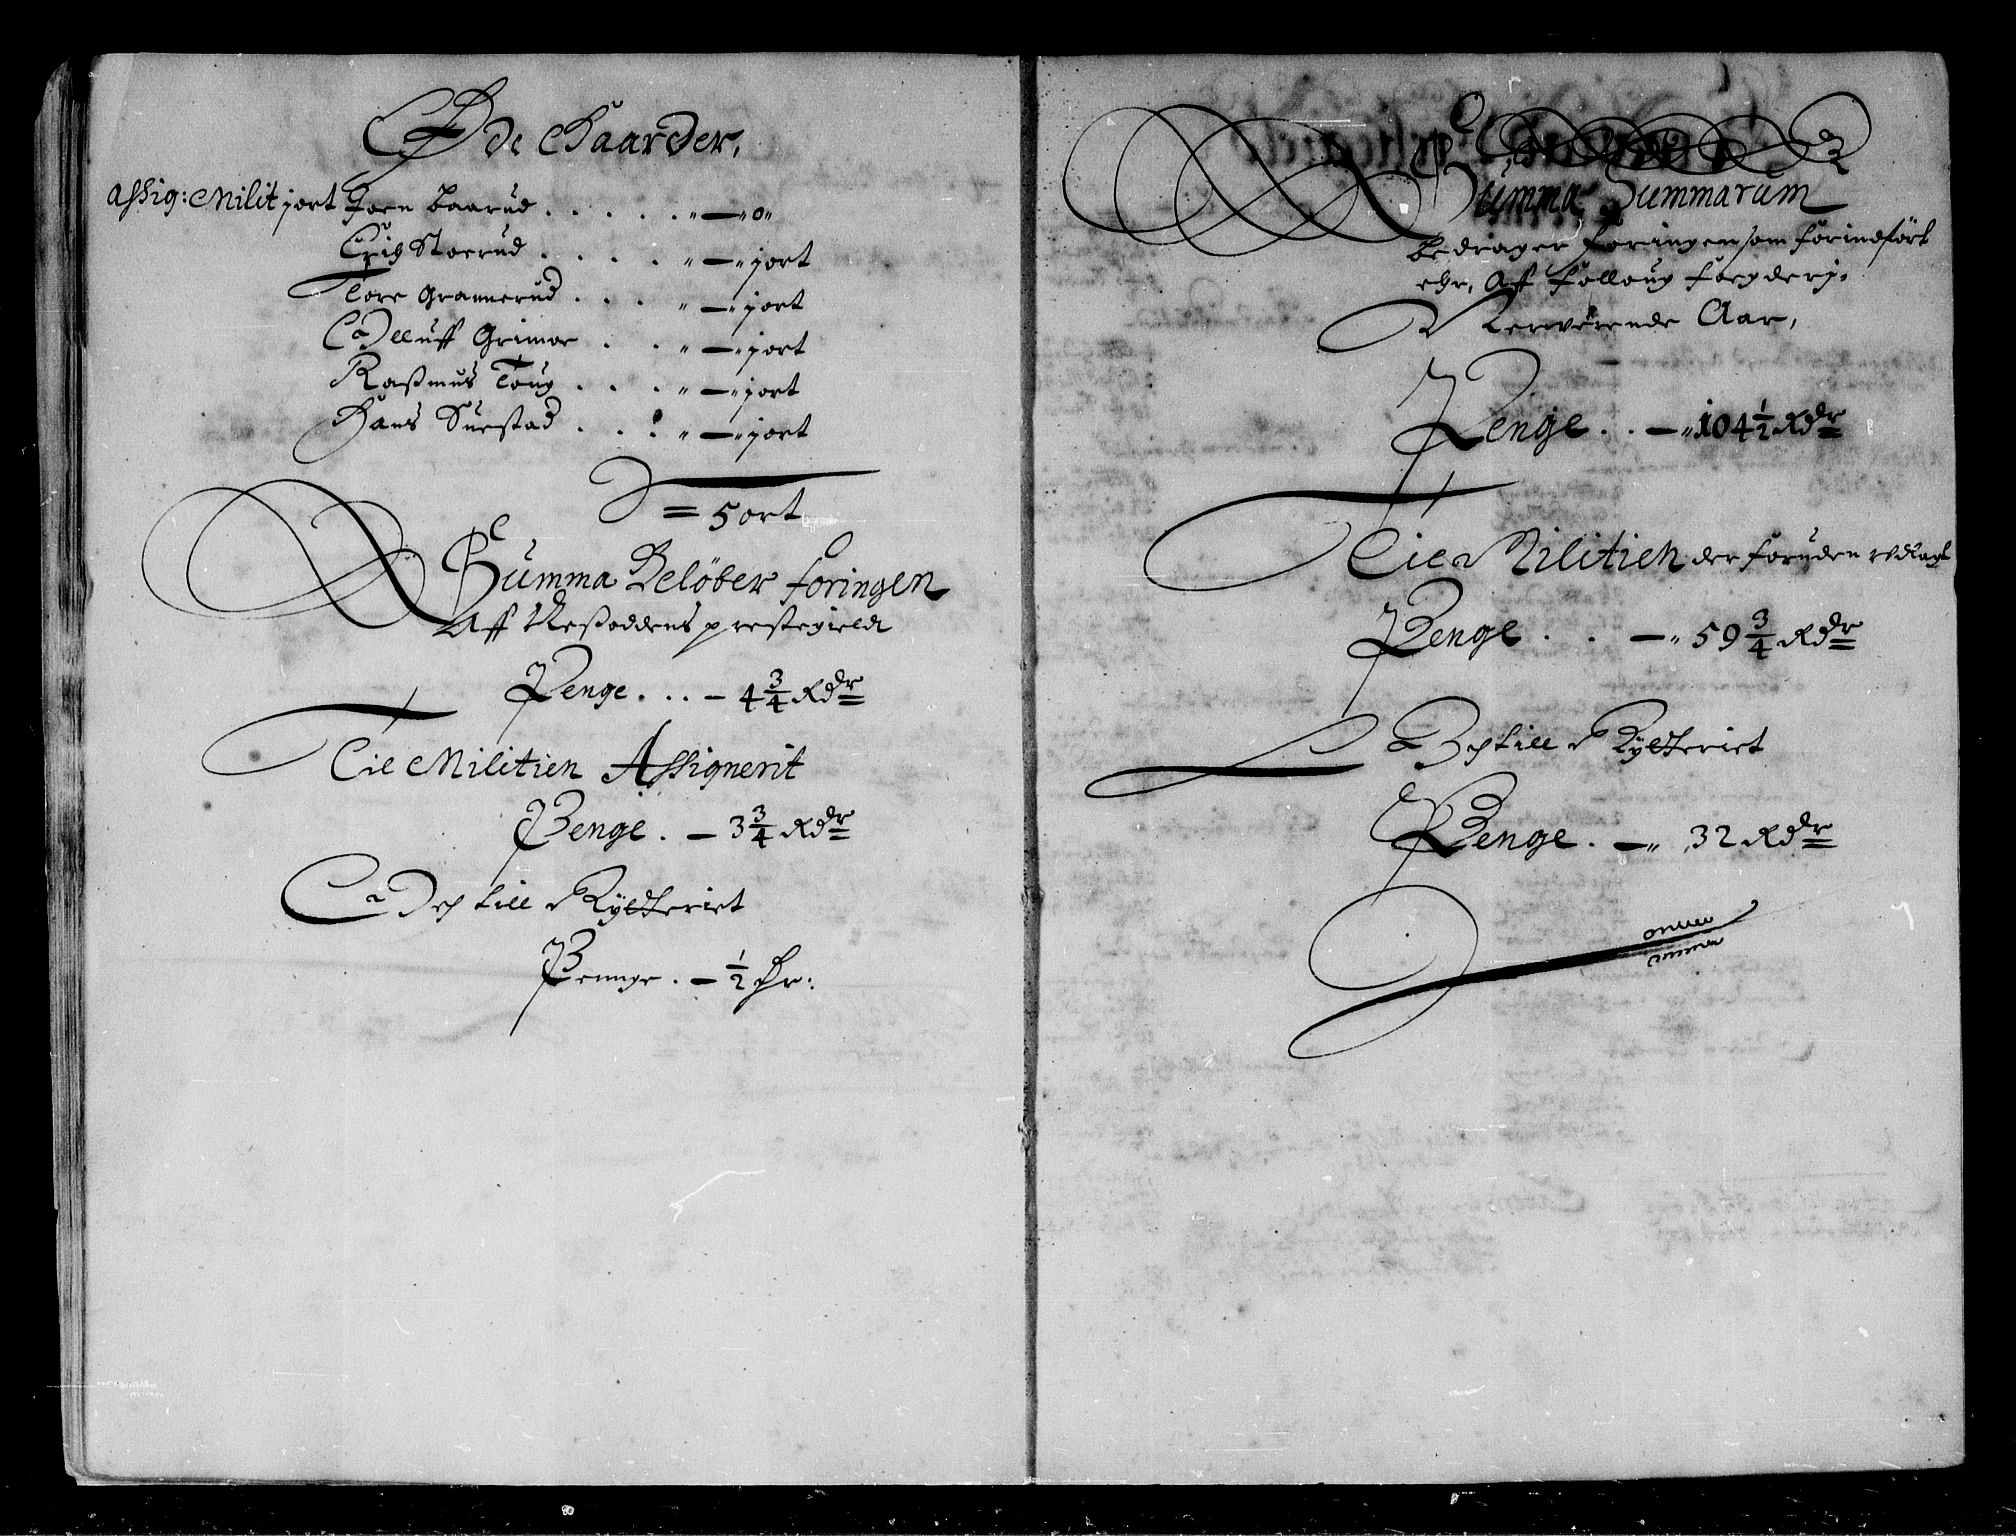 Øde Gaarder,
Assig: Milit 1 ort Joen Baarud . . . . . „ — „ 0 „
Erich Stoerud . . . . „ — „ 1 ort
Tore Grannerud . . . „ — „ 1 ort
Olluff Grimoe . . „ — „ 1 ort
Rasmus Toug . . . „ — „ 1 ort
Hans Suestad . . . „ — „ 1 ort
= 5 ort
Summa Beløber foringen
Aff Nessoddens prestegield
Penge . . . – 4 3/4 Rdr
Til Militien Assignerit
Penge . — 3 3/4 Rdr
Och till Rytteriet
Pennge . — 1/2 dr:
Summa Summarum
Bedrager foringen som forindfört
ehr, Aff folloug fogderj,
Nerverende Aar,
Penge . . — „ 104 1/2 Rdr
Til Militien der foruden udlagt
Penge . . — „ 59 3/4 Rdr
Och till Rytteriet
Penge . — „ 32 Rdr